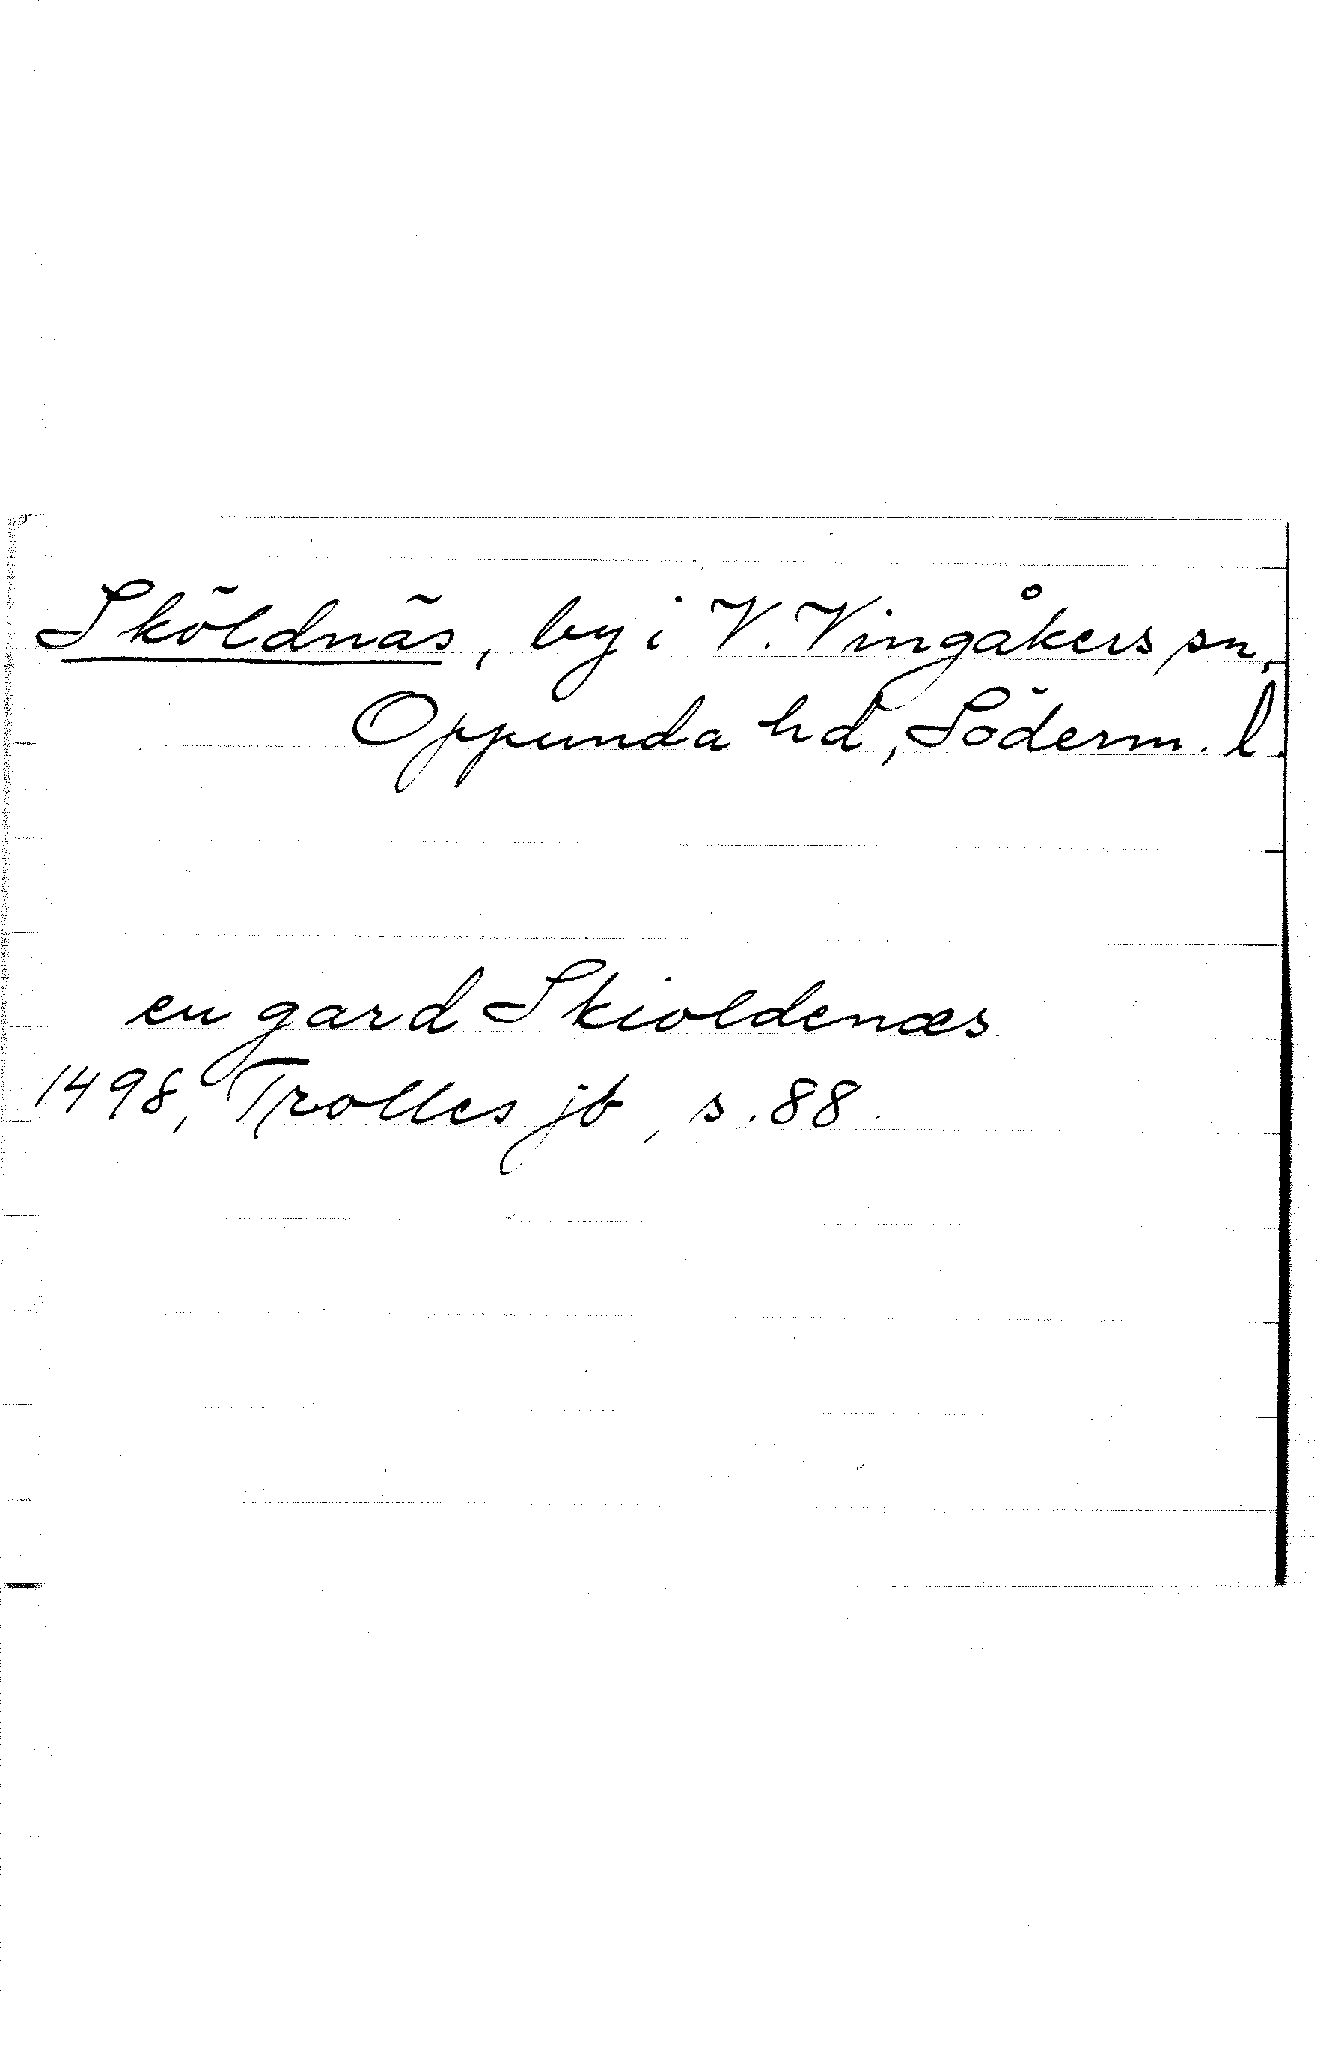 Sköldnäs, by i V. Vingåkers sn,
Oppunda hd, Söderm. l.
en gard Skioldenæs
1498, Trolles jb, s. 88.